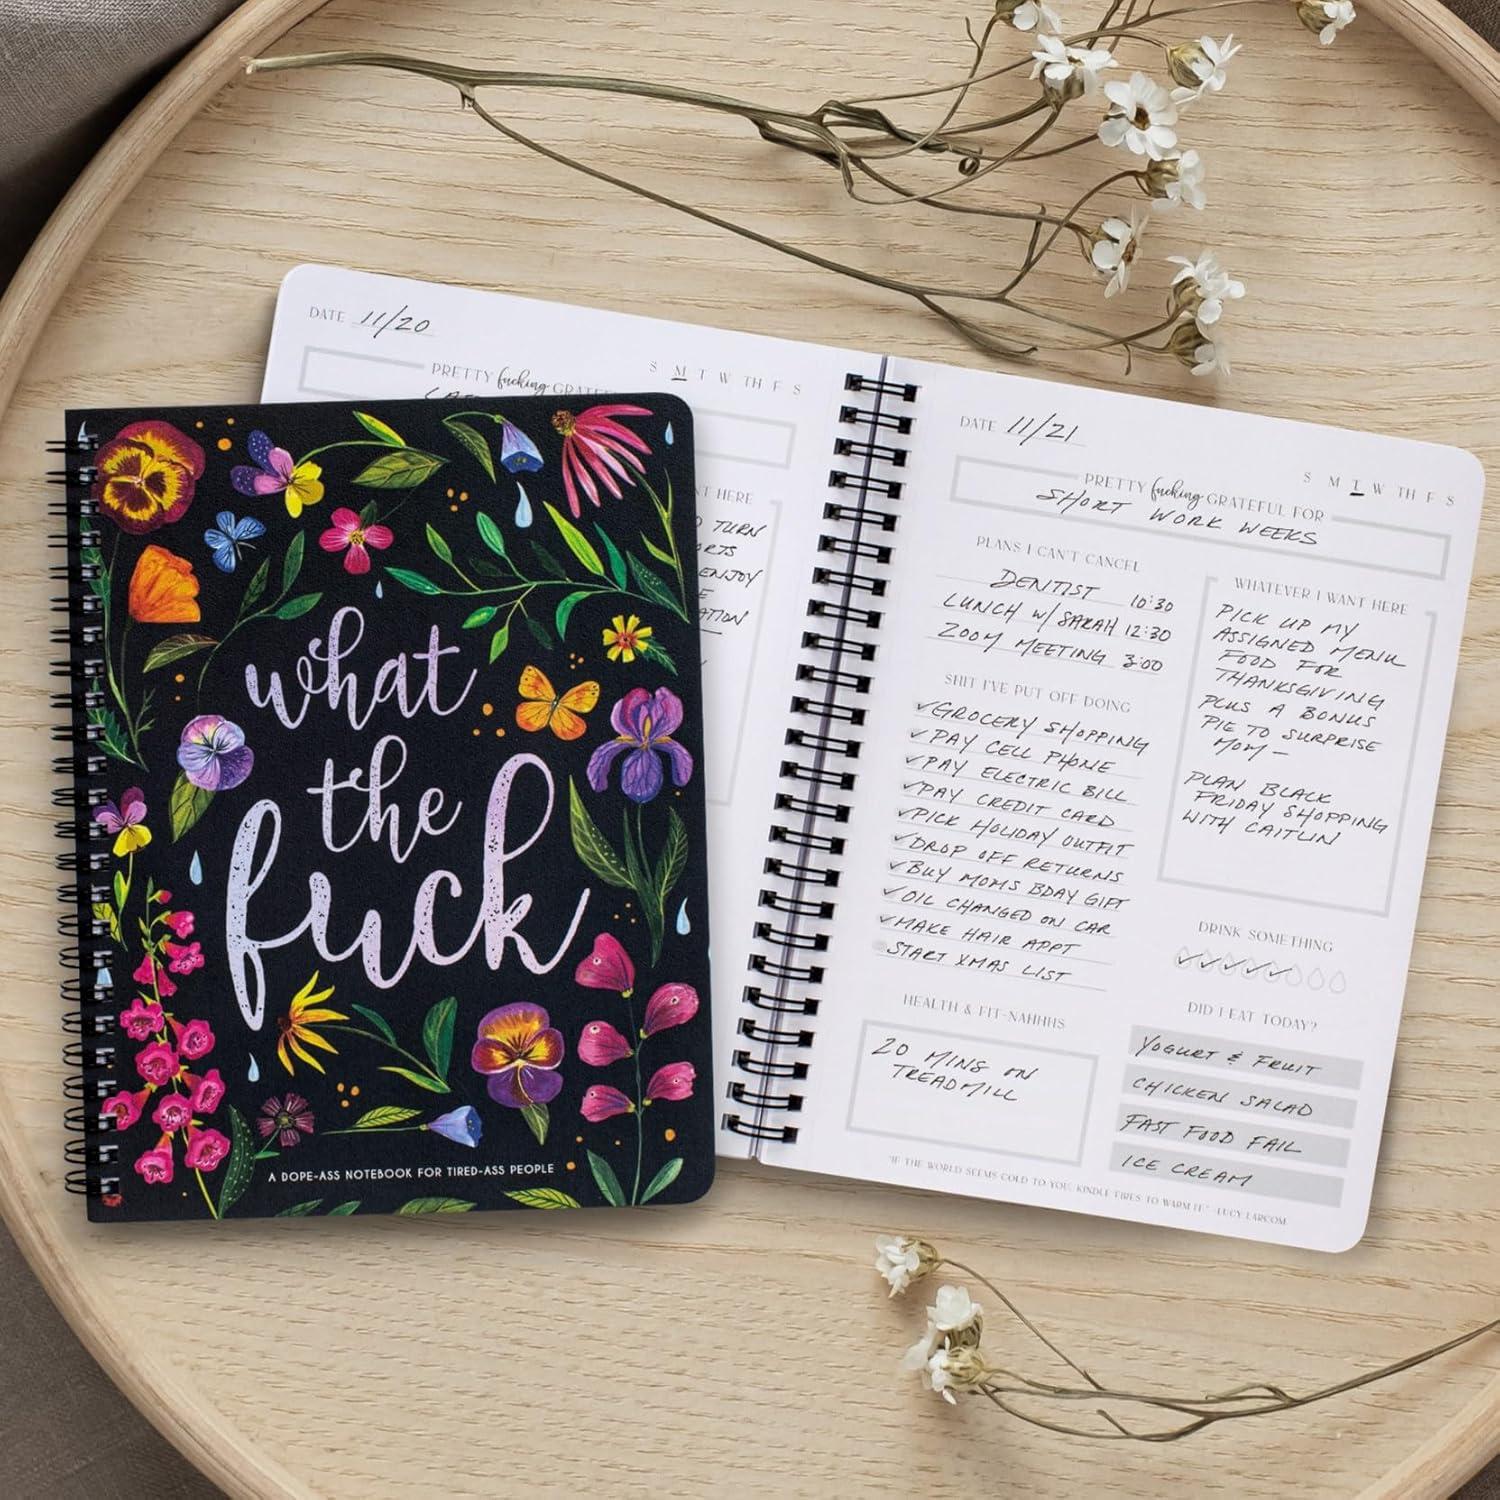 DATE 11/20
S M T W TH F S
PRETTY fucking
HERE
TURN
ENJOY
what
the
fuck
A DOPE-ASS NOTEBOOK FOR TIRED-ASS PEOPLE
DATE 11/21
S M T W TH F S
PRETTY fucking GRATEFUL FOR
SHORT WORK WEEKS
PLANS I CAN'T CANCEL
DENTIST 10:30
LUNCH W/ SARAH 12:30
ZOOM MEETING 3:00
SHIT I'VE PUT OFF DOING
✓GROCERY SHOPPING
✓PAY CELL PHONE
✓PAY ELECTRIC BILL
✓PAY CREDIT CARD
✓PICK HOLIDAY OUTFIT
✓DROP OFF RETURNS
✓BUY MOMS BDAY GIFT
✓OIL CHANGED ON CAR
✓MAKE HAIR APPT
START XMAS LIST
HEALTH & FIT-NAHHHS
20 MINS ON
TREADMILL
WHATEVER I WANT HERE
PICK UP MY
ASSIGNED MENU
FOOD FOR
THANKSGIVING
PLUS A BONUS
PIE TO SURPRISE
MOM-
PLAN BLACK
FRIDAY SHOPPING
WITH CAITLIN
DRINK SOMETHING
✓✓✓✓✓
DID I EAT TODAY?
YOGURT & FRUIT
CHICKEN SALAD
FAST FOOD FAIL
ICE CREAM
"IF THE WORLD SEEMS COLD TO YOU, KINDLE FIRES TO WARM IT." -LUCY LARCOM